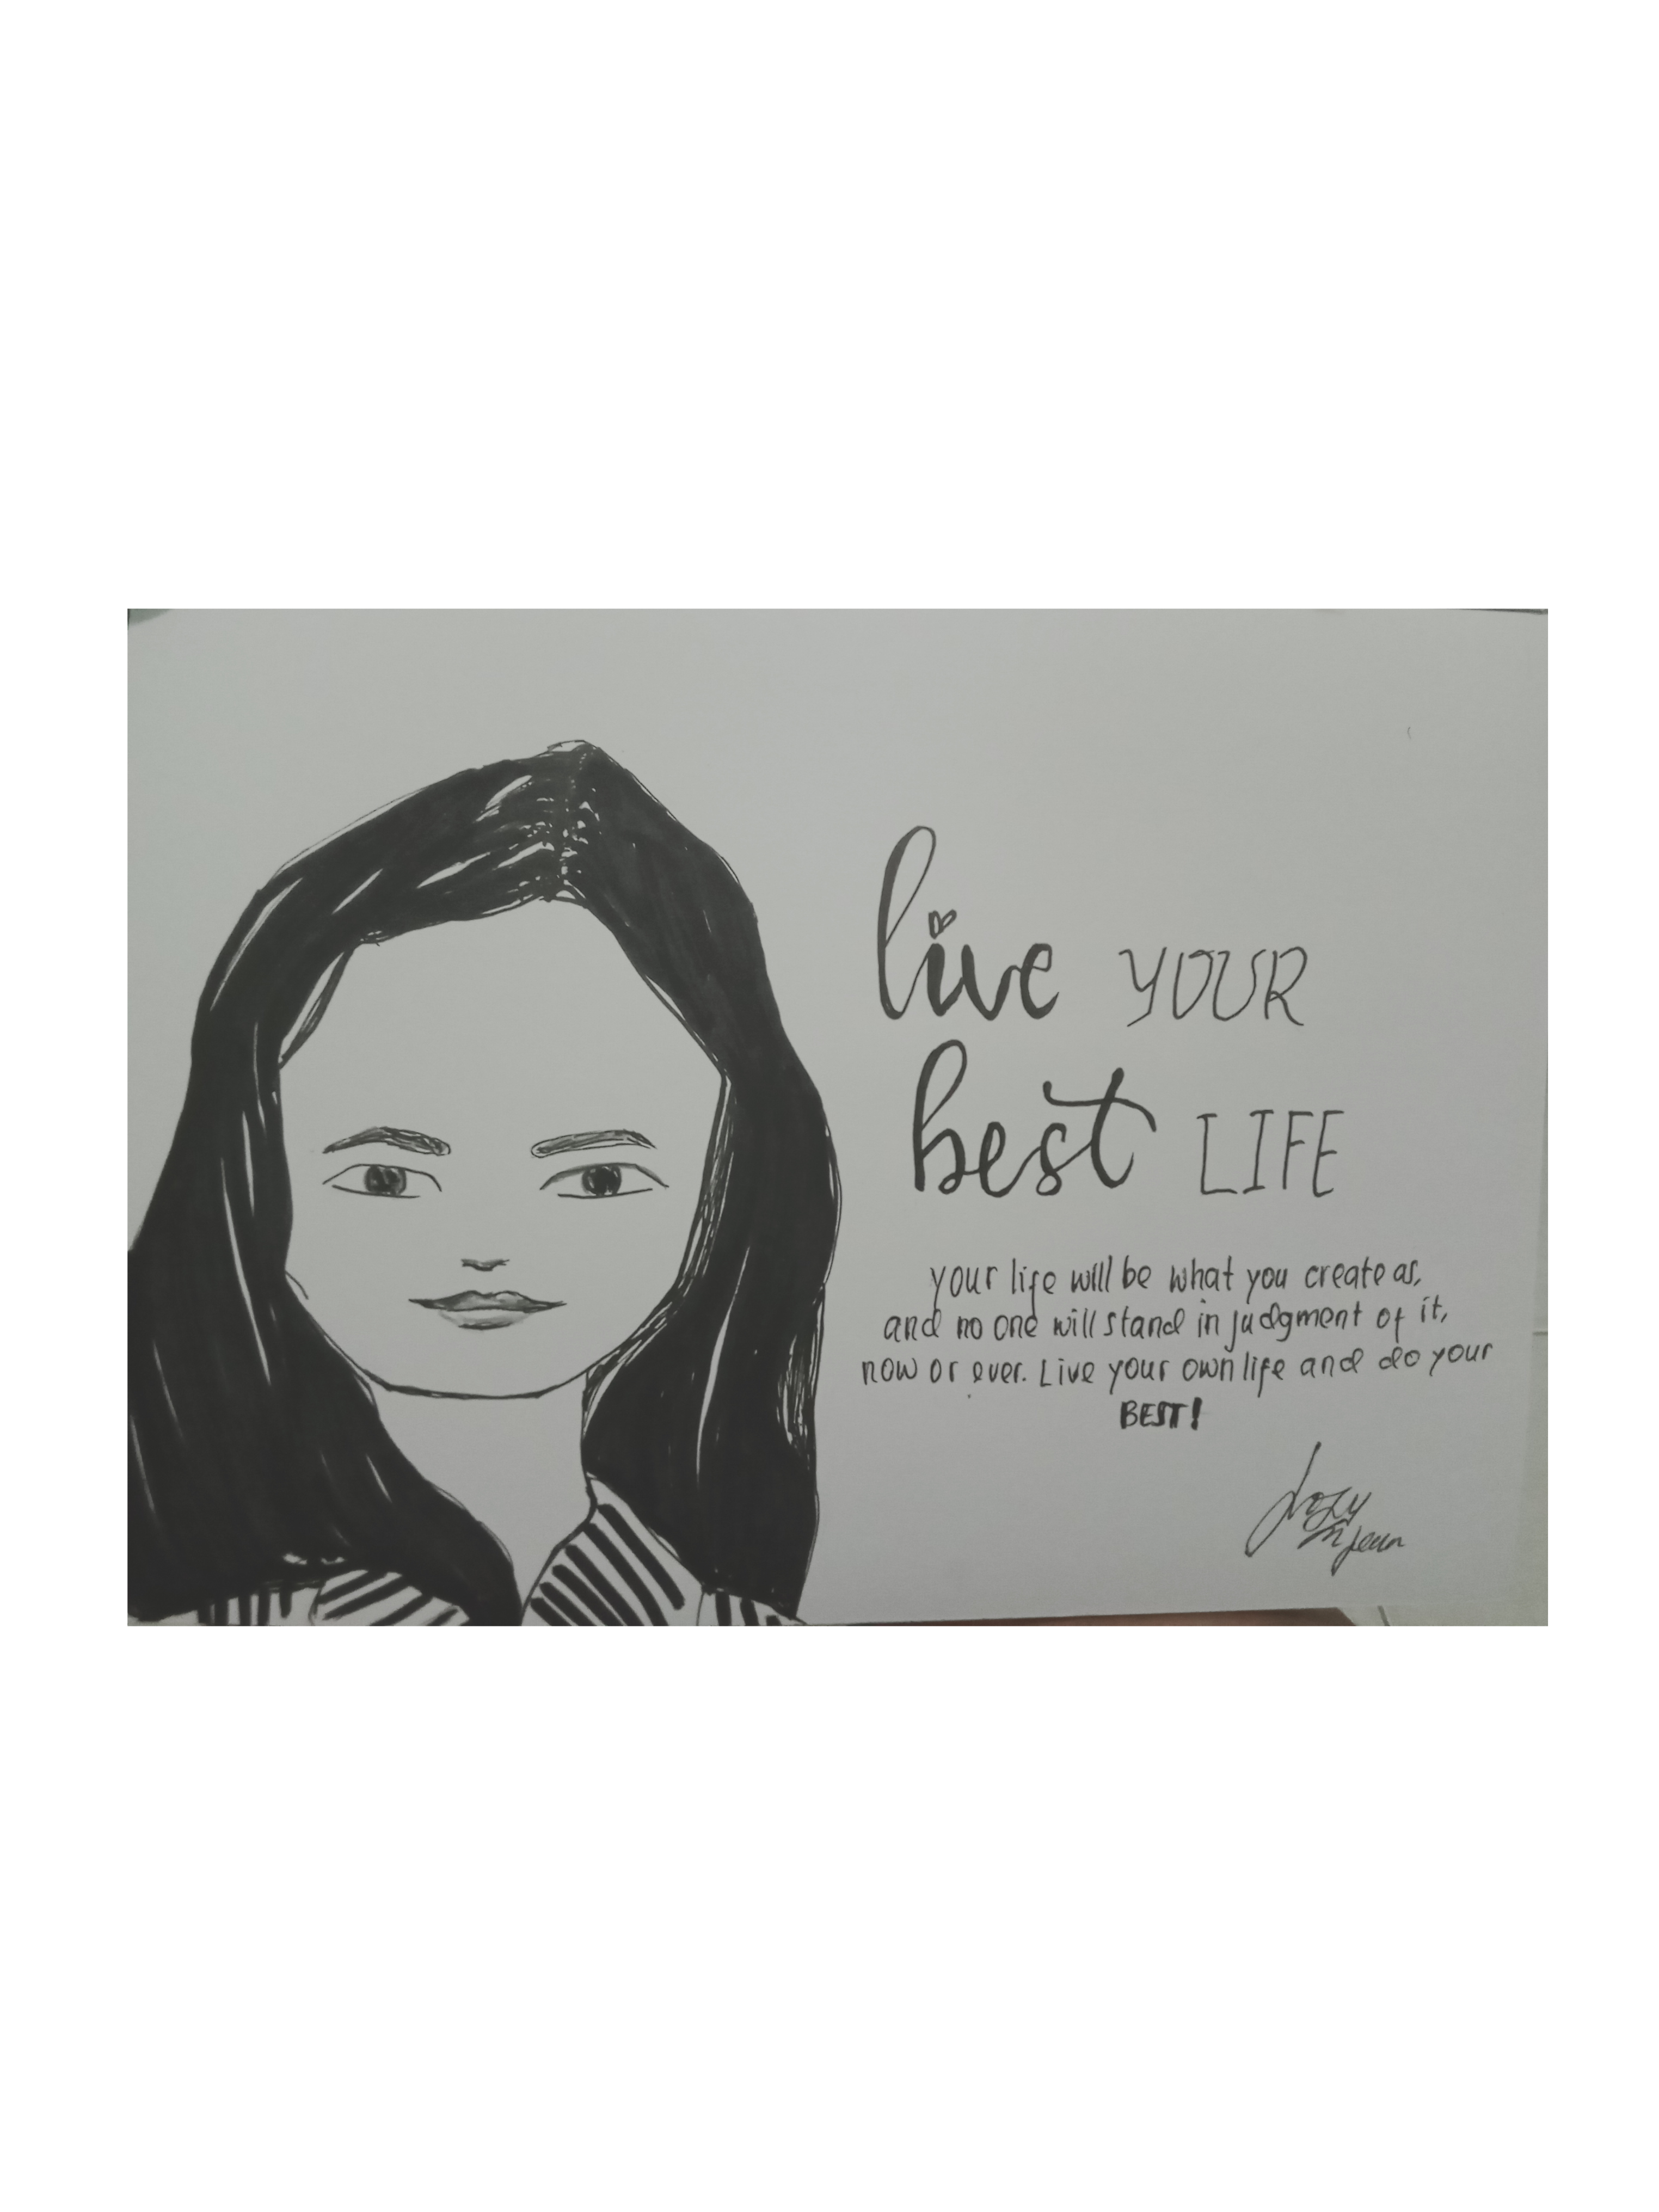 live YOUR
best LIFE
your life will be what you create as,
and no one will stand in judgment of it,
now or ever. Live your own life and do your
BEST!